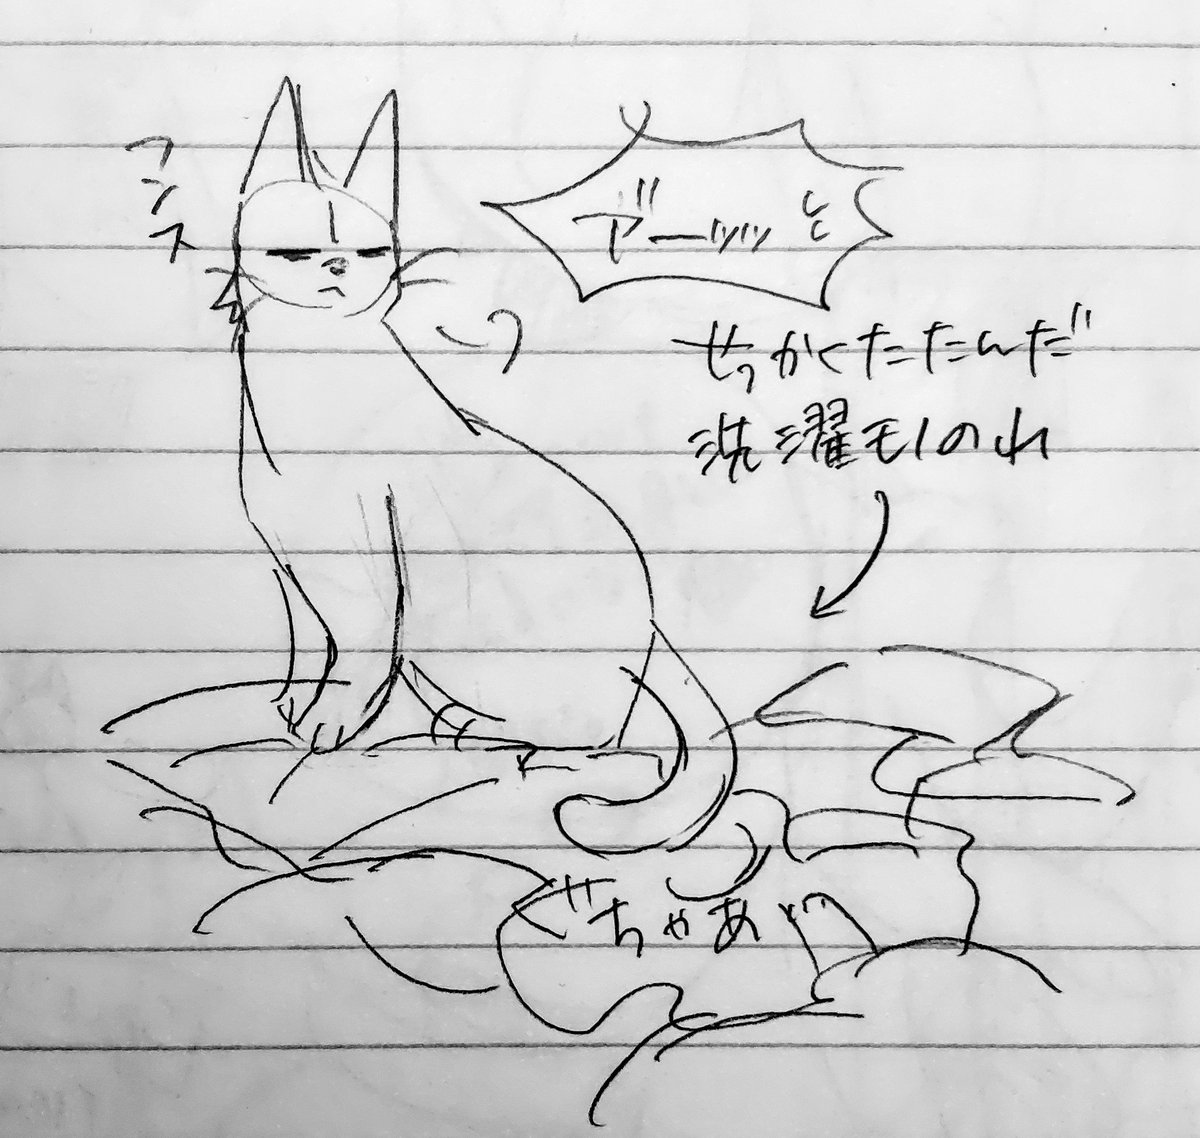 フンス
デーッッッ と
せっかくたたんだ
洗濯モノのれ
ぐちゃあ